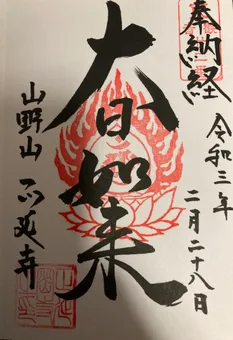 奉納経
令和三年
二月二十八日
大日如来
山野山 延寺